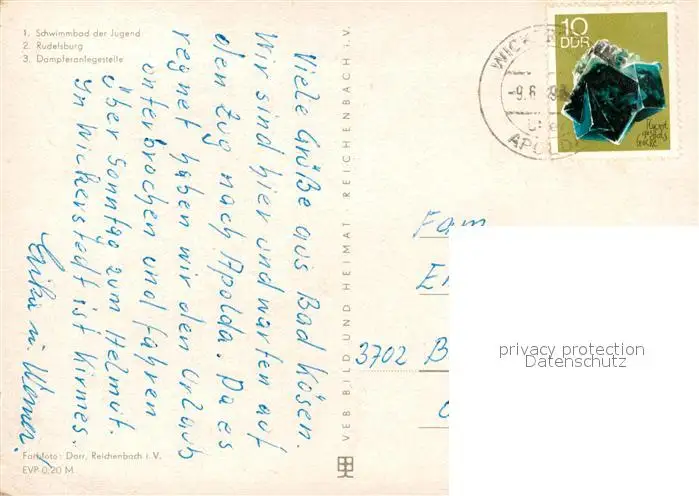 1. Schwimmbad der Jugend
2. Rudelsburg
3. Dampferanlegestelle
Viele Grüße aus Bad Kösen.
Wir sind hier und warten auf
den Zug nach Apolda. Da es
regnet haben wir den Urlaub
unterbrochen und fahren
über Sonntag zum Helmut.
In Wickerstedt ist Kirmes.
Erika u. Werner!
Farbfoto: Darr, Reichenbach i. V.
EVP 0,20 M
VEB BILD UND HEIMAT · REICHENBACH i. V.
10
DDR
WICKER
-9.8.
APOLDA
Fam
3702 B
privacy protection
Datenschutz